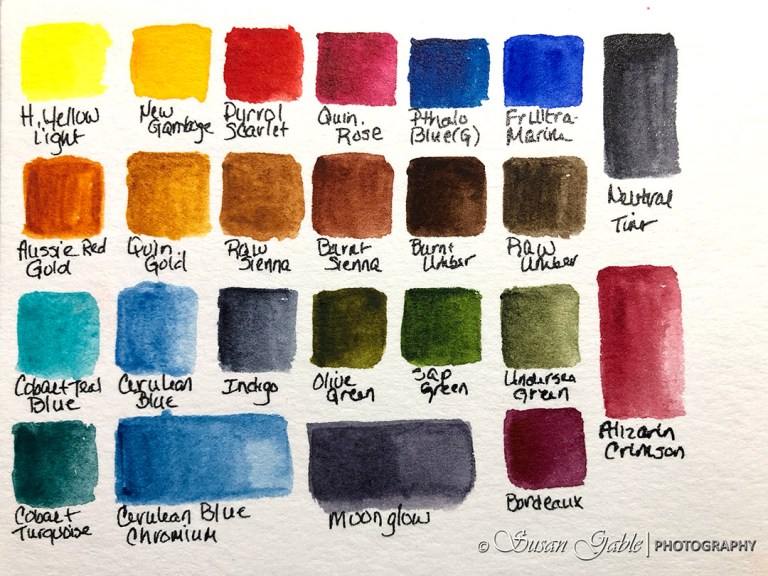 H. Yellow
Light
New
Gamboge
Pyrrol
Scarlet
Quin.
Rose
Pthalo
Blue(G)
Fr Ultra-
Marine
Neutral
Tint
Aussie Red
Gold
Quin
Gold
Raw
Sienna
Burnt
Sienna
Burnt
Umber
Raw
Umber
Cobalt Teal
Blue
Cerulean
Blue
Indigo
Olive
Green
Sap
Green
Undersea
Green
Alizarin
Crimson
Cobalt
Turquoise
Cerulean Blue
Chromium
Moonglow
Bordeaux
© Susan Gable | PHOTOGRAPHY